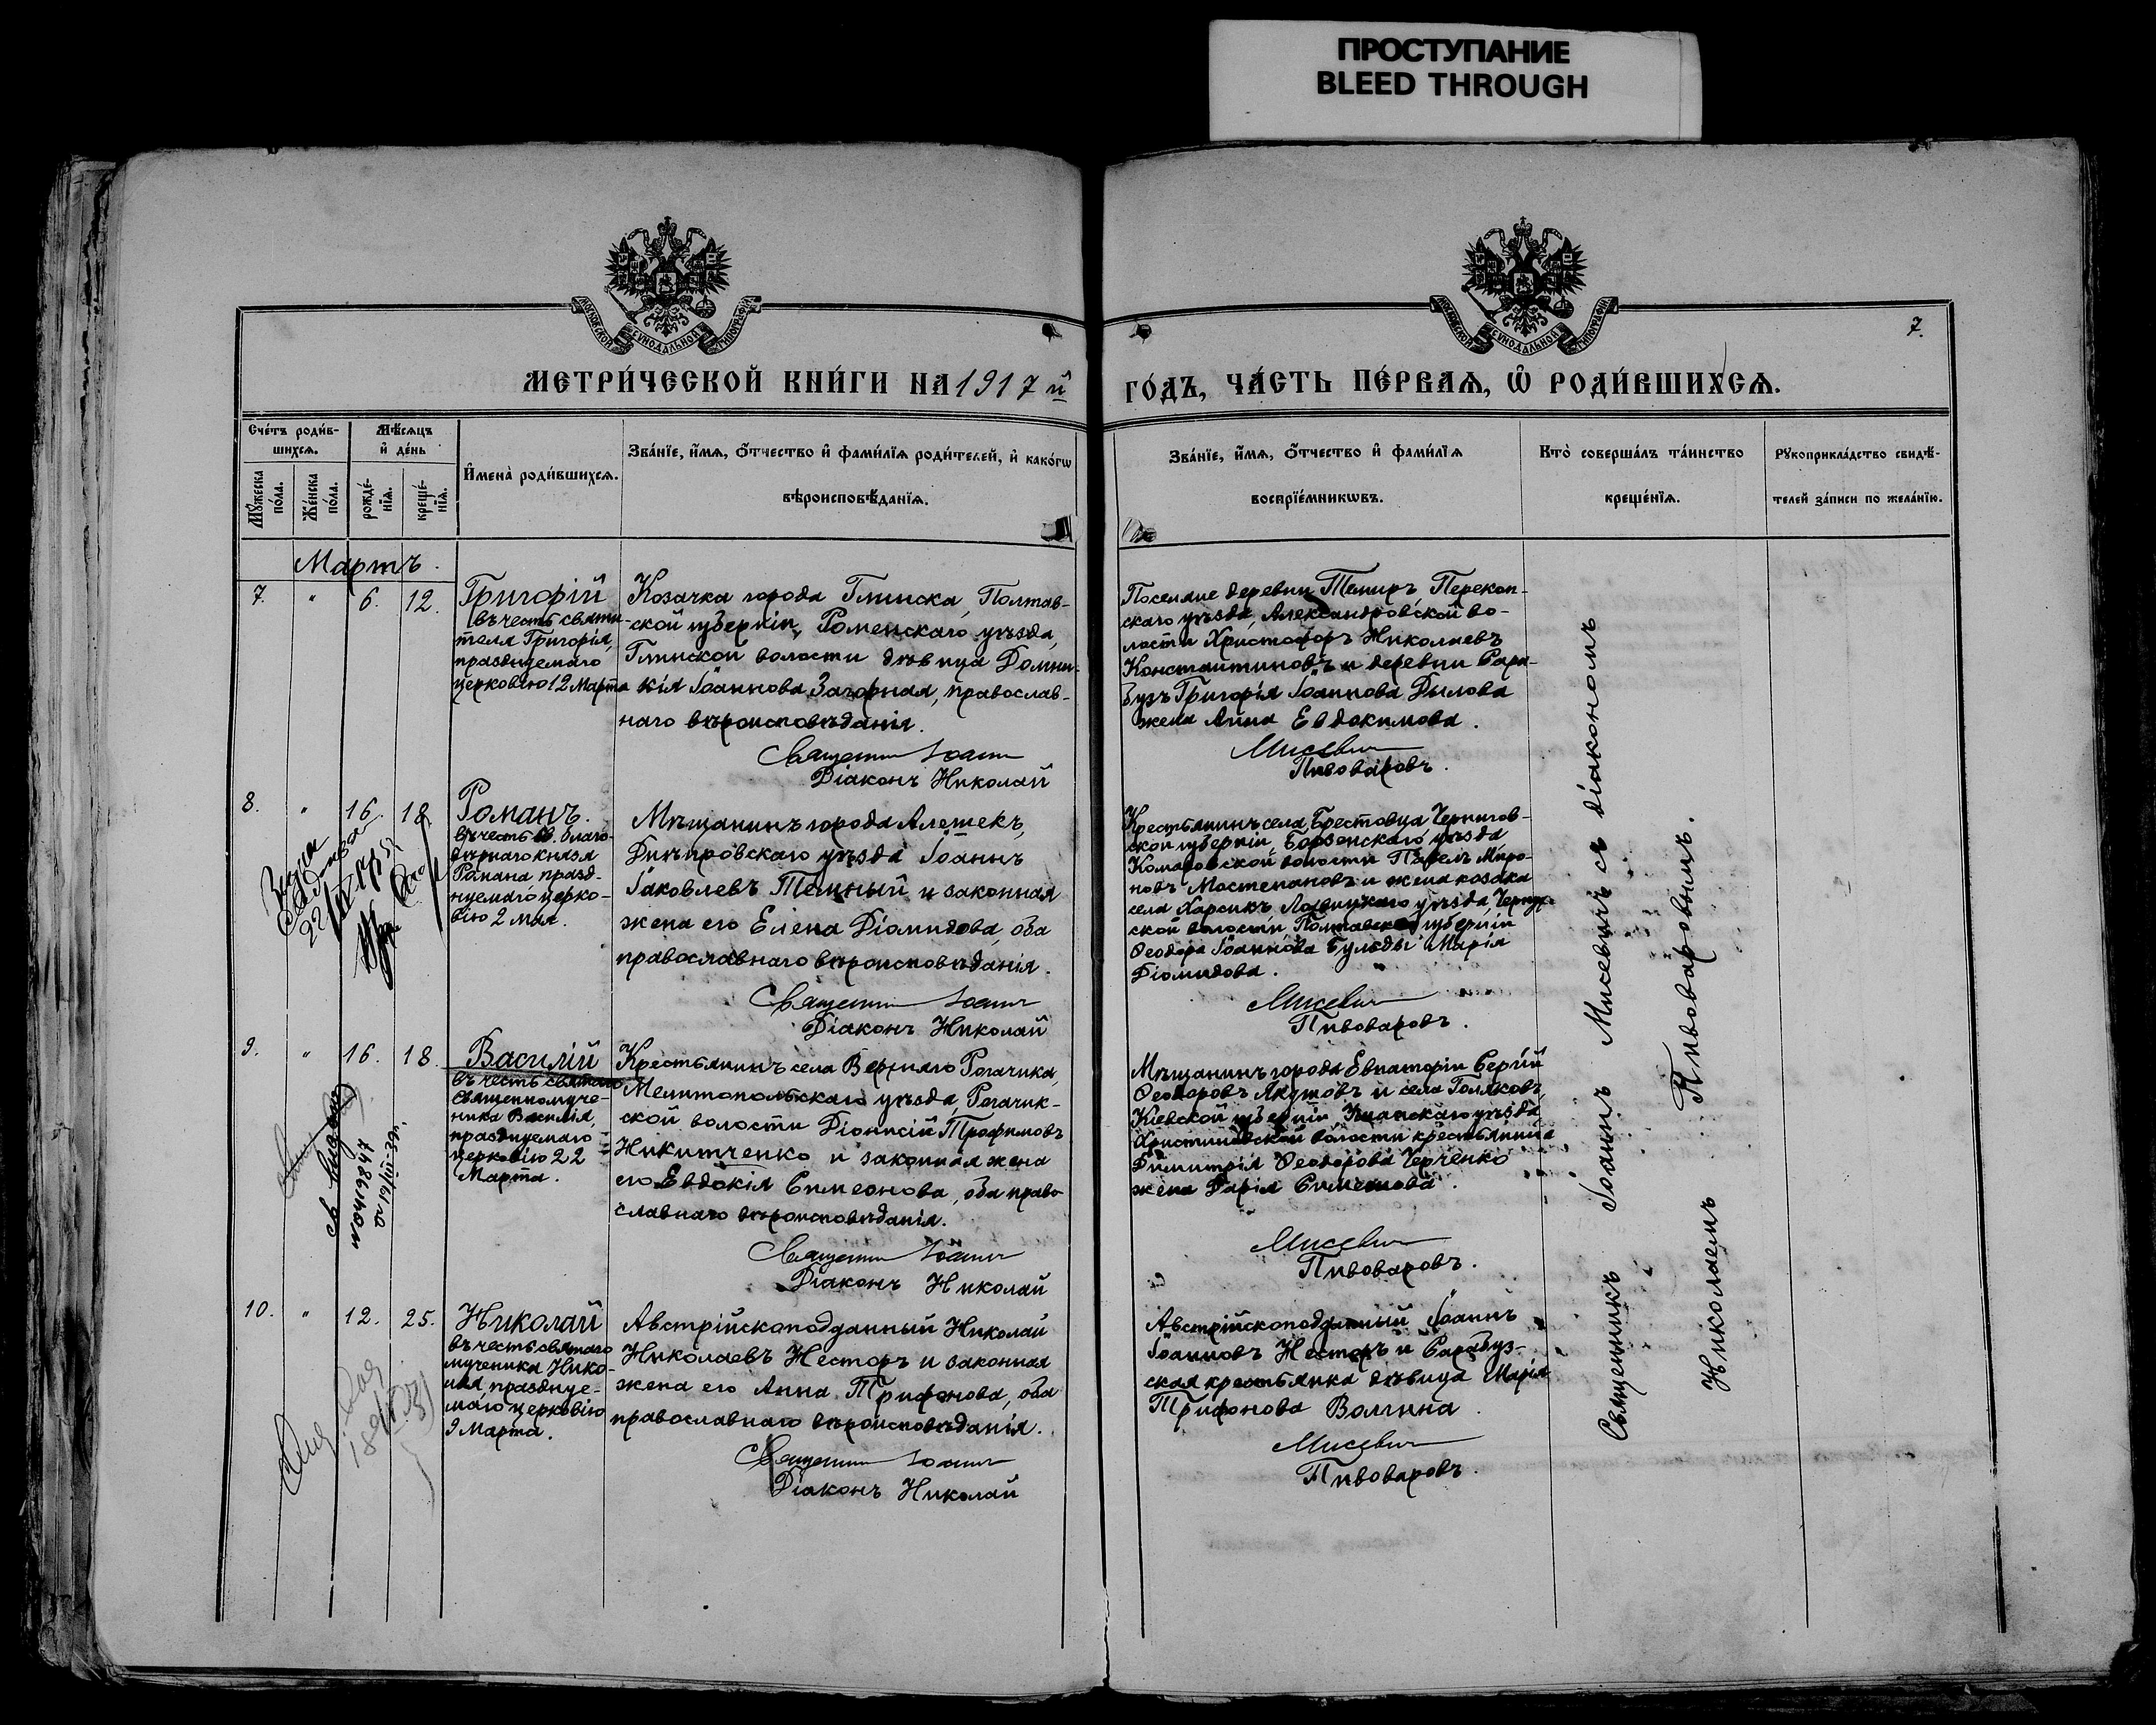 ПРОСТУПАНИЕ
BLEED THROUGH
МОСКОВСКОЙ СѴНОДАЛЬНОЙ ТИПОГРАФІИ
МОСКОВСКОЙ СѴНОДАЛЬНОЙ ТИПОГРАФІИ
7.
МЕТРИ́ЧЕСКОЙ КНИ́ГИ НА 1917 й
ГО́ДЪ, ЧА́СТЬ ПЕ́РВАѦ, Ѽ РОДИ́ВШИХСѦ.
Сче́тъ роди́в-
шихсѧ.
Мѣ́сѧцъ
и҆ де́нь
Мꙋ́жеска
по́ла.
Же́нска
по́ла.
рожде́-
нїѧ.
креще́-
нїѧ.
И҆мена̀ роди́вшихсѧ.
Зва́нїе, и҆́мѧ, ѻ҆́тчество и҆ фами́лїѧ роди́телей, и҆ како́гѡ
вѣроисповѣ́данїѧ.
Зва́нїе, и҆́мѧ, ѻ҆́тчество и҆ фами́лїѧ
воспрїе́мникѡвъ.
Кто̀ соверша́лъ та́инство
креще́нїѧ.
Рꙋкоприкла́дство свидѣ́-
телей за́писи по жела́нїю.
Мартъ.
7. " 6. 12.
Григорій
въ честь святи-
теля Григорія,
празднуемаго
церковію 12 Марта
Козачка города Глинска, Полтав-
ской губерніи, Роменскаго уѣзда,
Глинской волости дѣвица Домни-
кія Іоаннова Загорная, православ-
наго вѣроисповѣданія.
Священникъ Іоаннъ
Діаконъ Николай
Поселяне деревни Темиръ, Перекоп-
скаго уѣзда, Александровской во-
лости Христофоръ Николаевъ
Константиновъ и деревни Сара-
бузъ Григорія Іоаннова Дылова
жена Анна Евдокимова.
Мисевичъ
Пивоваровъ.
8. " 16. 18.
Романъ.
въ честь св. благо-
вѣрнаго князя
Романа празд-
нуемаго церко-
вію 2 мая.
Мѣщанинъ города Алешекъ,
Днѣпровскаго уѣзда Іоаннъ
Іаковлевъ Темный и законная
жена его Елена Діомидова, оба
православнаго вѣроисповѣданія.
Священникъ Іоаннъ
Діаконъ Николай
Крестьянинъ села Брестовца Чернигов-
ской губерніи, Борзенскаго уѣзда
Комаровской волости Павелъ Миро-
новъ Мостепановъ и жена козака
села Харсикъ, Лохвицкаго уѣзда
ской волости, Полтавской губерніи
Ѳеодора Іоаннова Гульды Марія
Діомидова.
Мисевичъ
Пивоваровъ.
9. " 16. 18.
Василій
въ честь святаго
священномуче-
ника Василія,
празднуемаго
церковію 22
Марта.
Крестьянинъ села Верхняго Рогачика,
Мелитопольскаго уѣзда, Рогачик-
ской волости Діонисій Трофимовъ
Никитченко и законная жена
его Евдокія Симеонова, оба право-
славнаго вѣроисповѣданія.
Священникъ Іоаннъ
Діаконъ Николай
Мѣщанинъ города Евпаторіи Сергій
Ѳеодоровъ Якушовъ и села
Кіевской губерніи Уманскаго уѣзда
Христиновской волости крестьянина
Димитрія Ѳеодорова Черченко
жена Дарія Симеонова.
Мисевичъ
Пивоваровъ.
10. " 12. 25.
Николай
въ честь святаго
мученика Нико-
лая, празднуе-
маго церковію
9 Марта.
Австрійскоподданный Николай
Николаевъ Несторъ и законная
жена его Анна Трифонова, оба
православнаго вѣроисповѣданія.
Священникъ Іоаннъ
Діаконъ Николай
Австрійскоподданный Іоаннъ
Іоанновъ Несторъ и Сарабуз-
ская крестьянка дѣвица Марія
Трифонова Волгина.
Мисевичъ
Пивоваровъ.
Священникъ Іоаннъ Мисевичъ съ діакономъ
Николаемъ Пивоваровымъ.